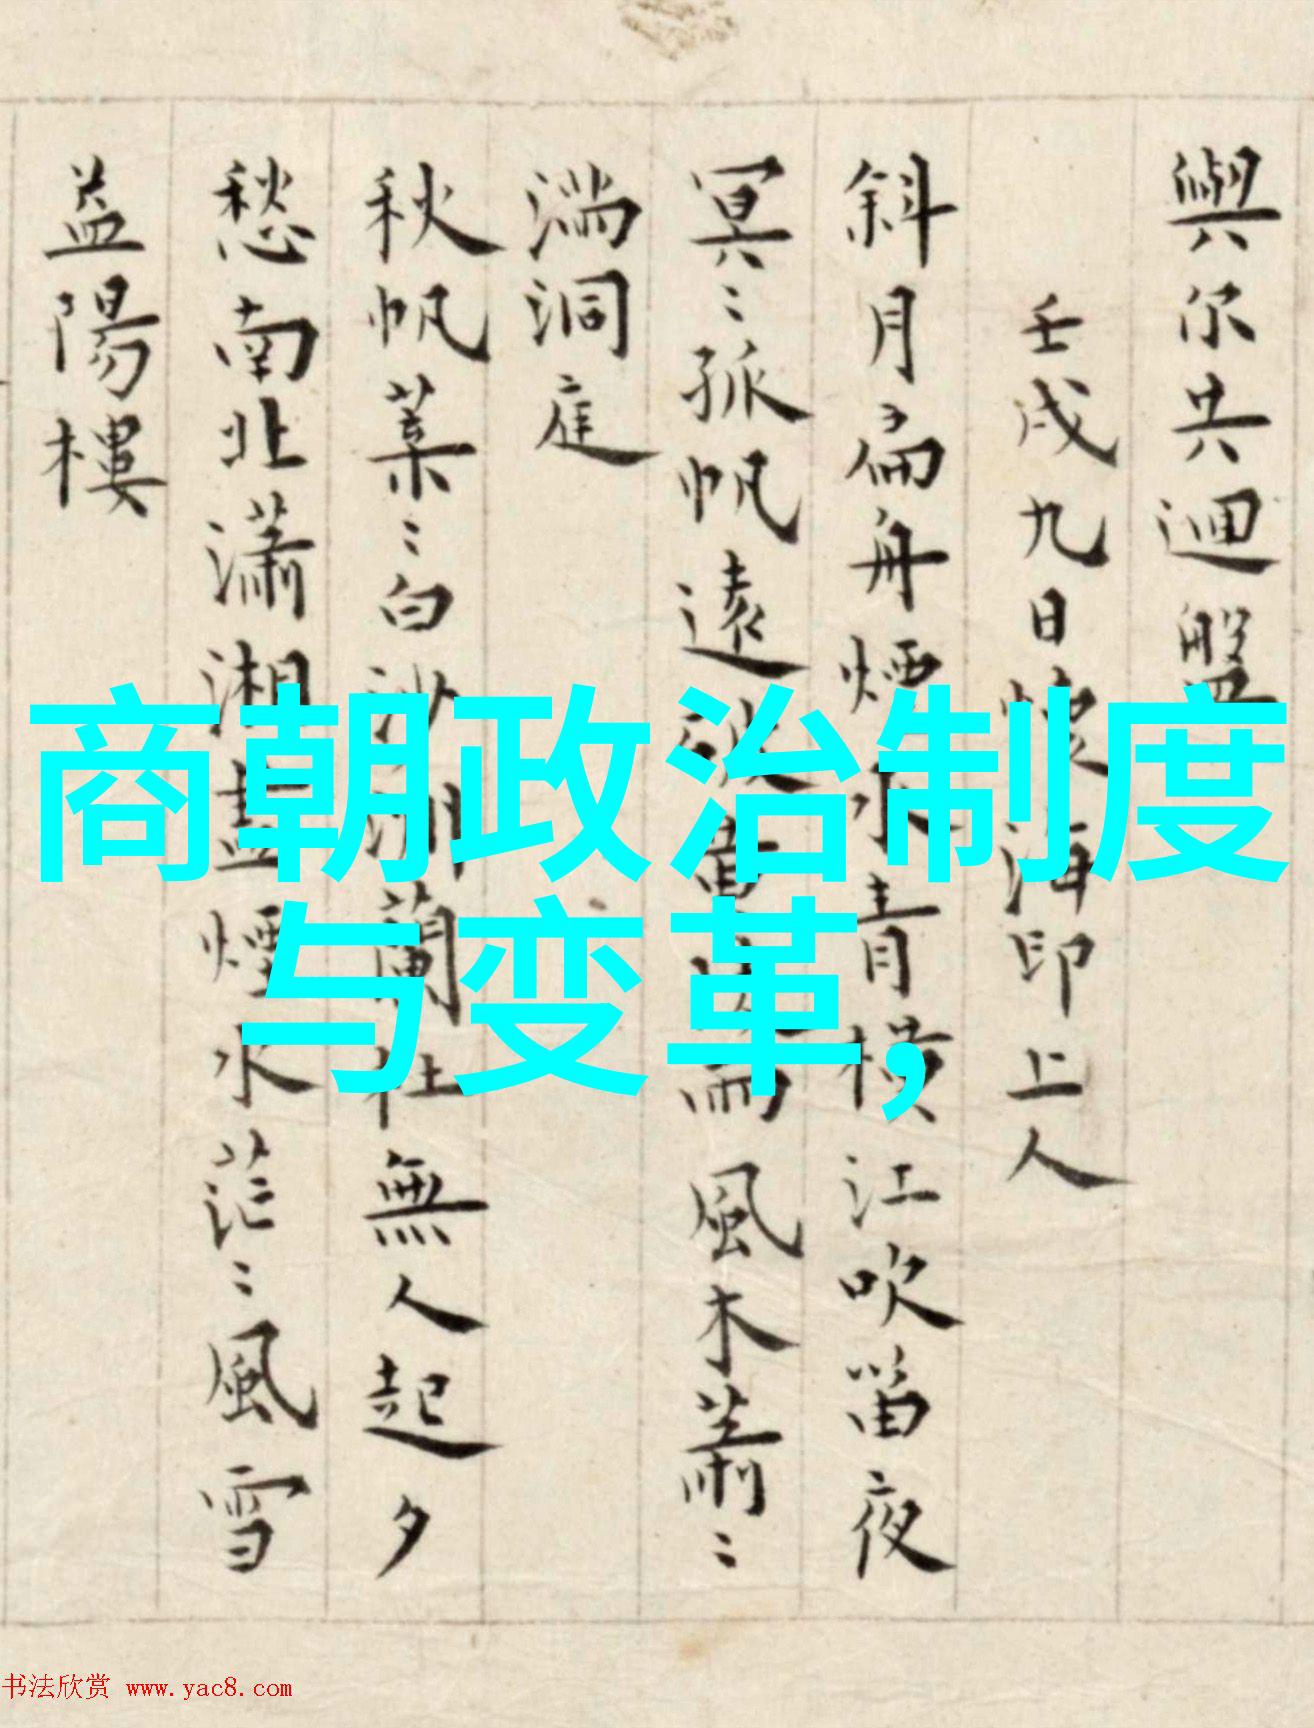 與尔共迴盤
壬戌九日懷海印上人
斜月扁舟煙水青橫江吹笛夜
冥〻孤帆遠 風木蕭〻
湍洞庭
秋帆葉〻白沙湖蘭杜無人起夕
愁南北瀟湘盡煙水茫〻風雪
益陽樓
商朝政治制度
与变革,
书法欣赏 www.yac8.com